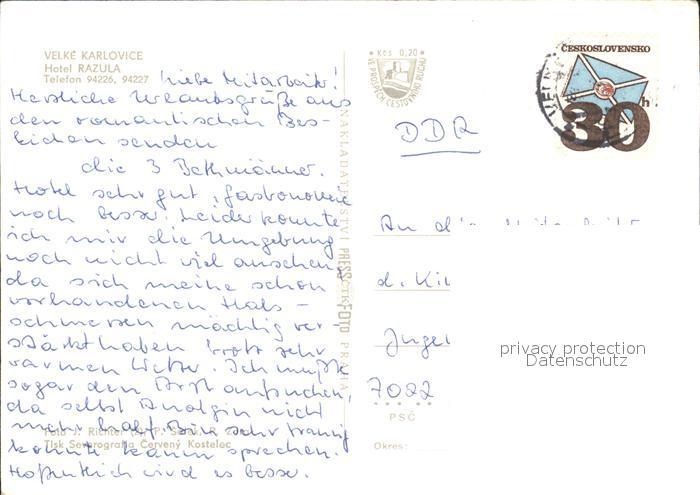 VELKÉ KARLOVICE
Hotel RAZULA
Telefon 94226, 94227
Liebe Mitarbeiter!
Herzliche Urlaubsgrüße aus
den romantischen Bes-
kiden senden
die 3 Bethmänner.
Hotel sehr gut, Gastronomie
noch besser. Leider konnte
ich mir die Umgebung
noch nicht viel ansehen,
da sich meine schon
vorhandenen Hals-
schmerzen mächtig ver-
stärkt haben trotz sehr
warmen Wetter. Ich mußte
sogar den Arzt aufsuchen,
da selbst Analgin nicht
mehr half. Bin sehr traurig
konnte kaum sprechen.
Hoffentlich wird es besser.
Foto J. Richter
Tisk Severografia Červený Kostelec
NAKLADATELSTVÍ PRESSFOTO PRAHA
* Kčs 0,20 *
VE PROSPĚCH CESTOVNÍHO RUCHU
ČESKOSLOVENSKO
30 h
DDR
An die
d. Ki
Juge
7022
PSČ
Okres:
privacy protection
Datenschutz